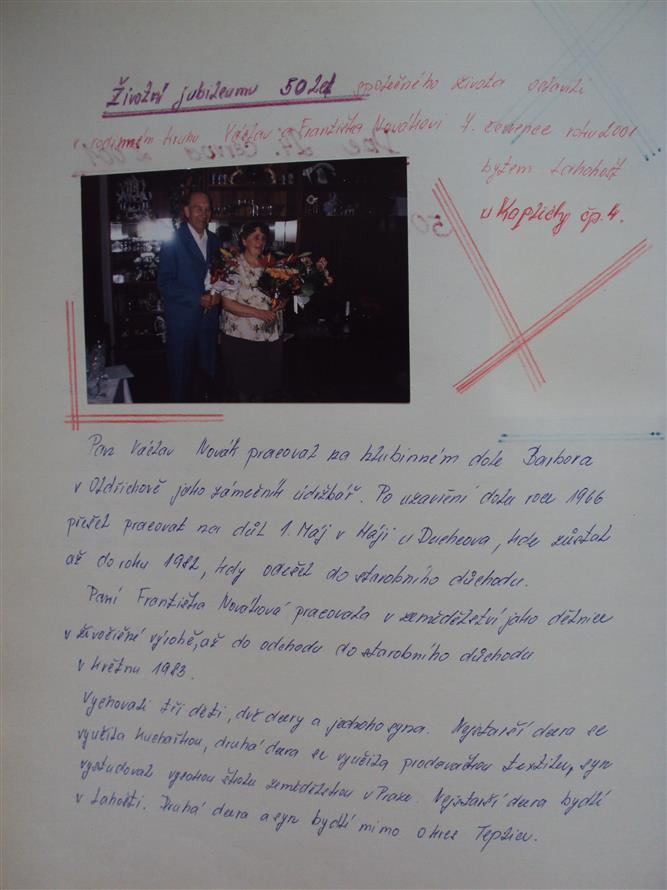 Životní jubileum 50 let společného života oslavili
v rodinném kruhu Václav a Františka Novákovi 7. července roku 2001
bytem Lahošť
u Kapličky čp. 4.
Pan Václav Novák pracoval na hlubinném dole Barbora
v Oldřichově jako zámečník údržbář. Po uzavření dolu roce 1966
přešel pracovat na důl 1. Máj v Háji u Duchcova, kde zůstal
až do roku 1982, kdy odešel do starobního důchodu.
Paní Františka Nováková pracovala v zemědělství jako dělnice
v živočišné výrobě, až do odchodu do starobního důchodu
v květnu 1983.
Vychovali tři děti, dvě dcery a jednoho syna. Nejstarší dcera se
vyučila kuchařkou, druhá dcera se vyučila prodavačkou textilu, syn
vystudoval vysokou školu zemědělskou v Praze. Nejstarší dcera bydlí
v Lahošti. Druhá dcera a syn bydlí mimo okres Teplice.